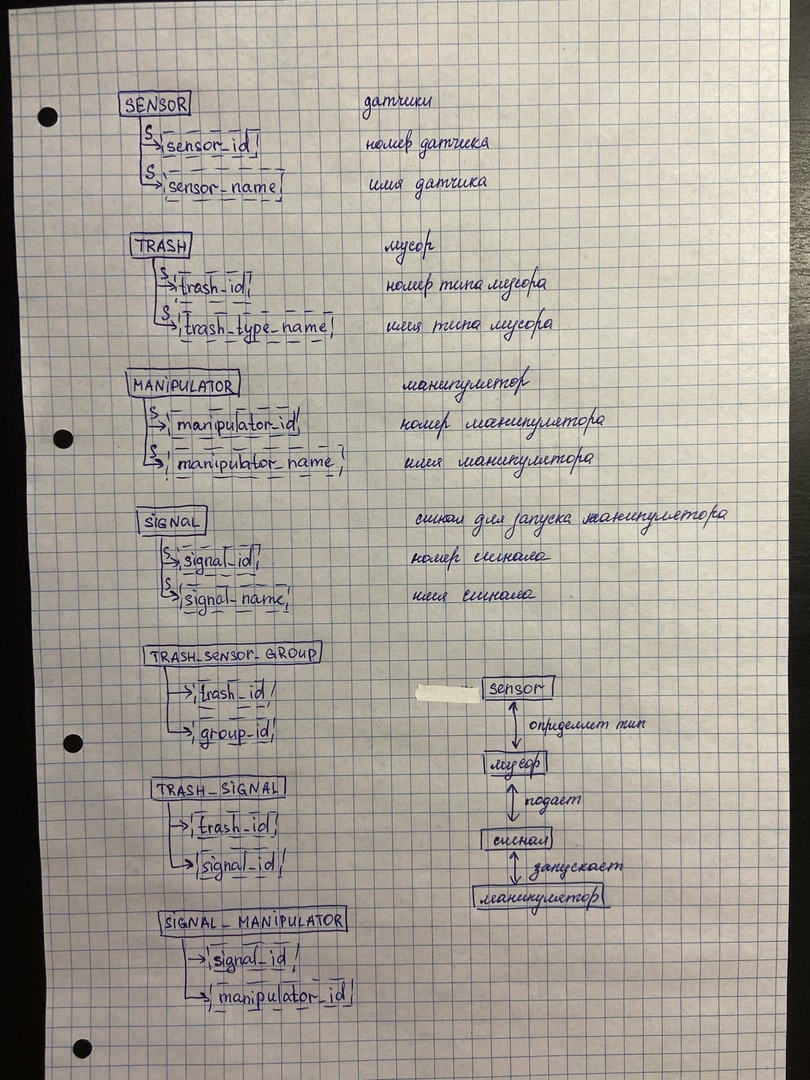 SENSOR датчики
S sensor_id номер датчика
S sensor_name имя датчика
TRASH мусор
S trash_id номер типа мусора
S trash_type_name имя типа мусора
MANIPULATOR манипулятор
S manipulator_id номер манипулятора
S manipulator_name имя манипулятора
SIGNAL сигнал для запуска манипулятора
S signal_id номер сигнала
S signal_name имя сигнала
TRASH_SENSOR_GROUP
trash_id
group_id
TRASH_SIGNAL
trash_id
signal_id
SIGNAL_MANIPULATOR
signal_id
manipulator_id
sensor
определяет тип
мусор
подает
сигнал
запускает
манипулятор